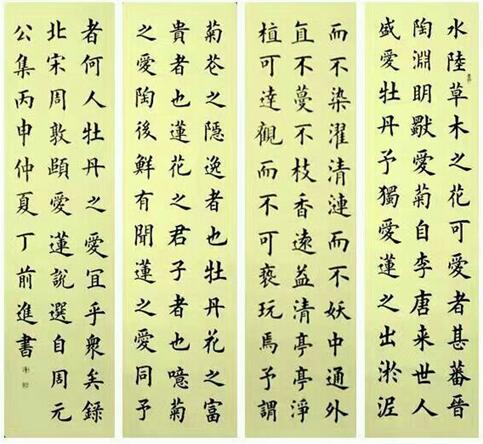 水陸草木之花可愛者甚蕃晉
陶淵明獨愛菊自李唐来世人
盛愛牡丹予獨愛蓮之出淤泥
而不染濯清漣而不妖中通外
直不蔓不枝香遠益清亭亭淨
植可遠觀而不可褻玩焉予謂
菊花之隱逸者也牡丹花之富
貴者也蓮花之君子者也噫菊
之愛陶後鮮有聞蓮之愛同予
者何人牡丹之愛宜乎衆矣録
北宋周敦頤愛蓮說選自周元
公集丙申仲夏丁前進書